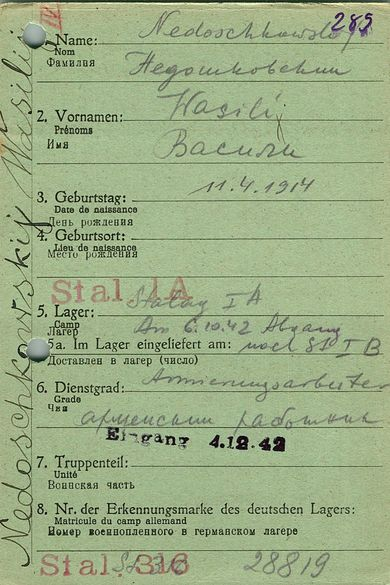 IV
285
1. Name: Nedoschkowskij
Nom
Фамилия Недошковский
2. Vornamen: Wasilij
Prénoms
Имя Василий
3. Geburtstag: 11.4.1914
Date de naissance
День рождения
4. Geburtsort:
Lieu de naissance
Место рождения
Stal. IA
5. Lager: Stalag IA
Camp
Лагер Am 6.10.42 Abgang
5a. Im Lager eingeliefert am: nach St I B
Доставлен в лагер (число)
6. Dienstgrad: Armierungsarbeiter
Grade
Чин армейский работник
Eingang 4.12.42
7. Truppenteil:
Unité
Воинская часть
8. Nr. der Erkennungsmarke des deutschen Lagers:
Matricule du camp allemand
Номер военнопленного в германском лагере
Stal. 316
28819
Nedoschkowskij Wasilij